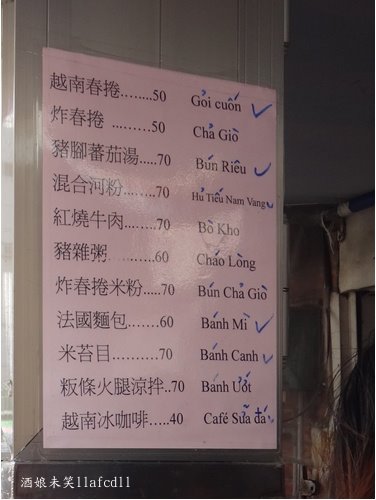 越南春捲.......50 Gỏi cuốn ✓
炸春捲 .........50 Chả Giò
豬腳蕃茄湯.....70 Bún Riêu ✓
混合河粉......70 Hủ Tiếu Nam Vang ✓
紅燒牛肉........70 Bò Kho
豬雜粥..........60 Cháo Lòng
炸春捲米粉.....70 Bún Chả Giò
法國麵包.......60 Bánh Mì ✓
米苔目..........70 Bánh Canh ✓
粄條火腿涼拌..70 Bánh Ướt
越南冰咖啡.....40 Café Sữa đá ✓
酒娘未笑llafcdll